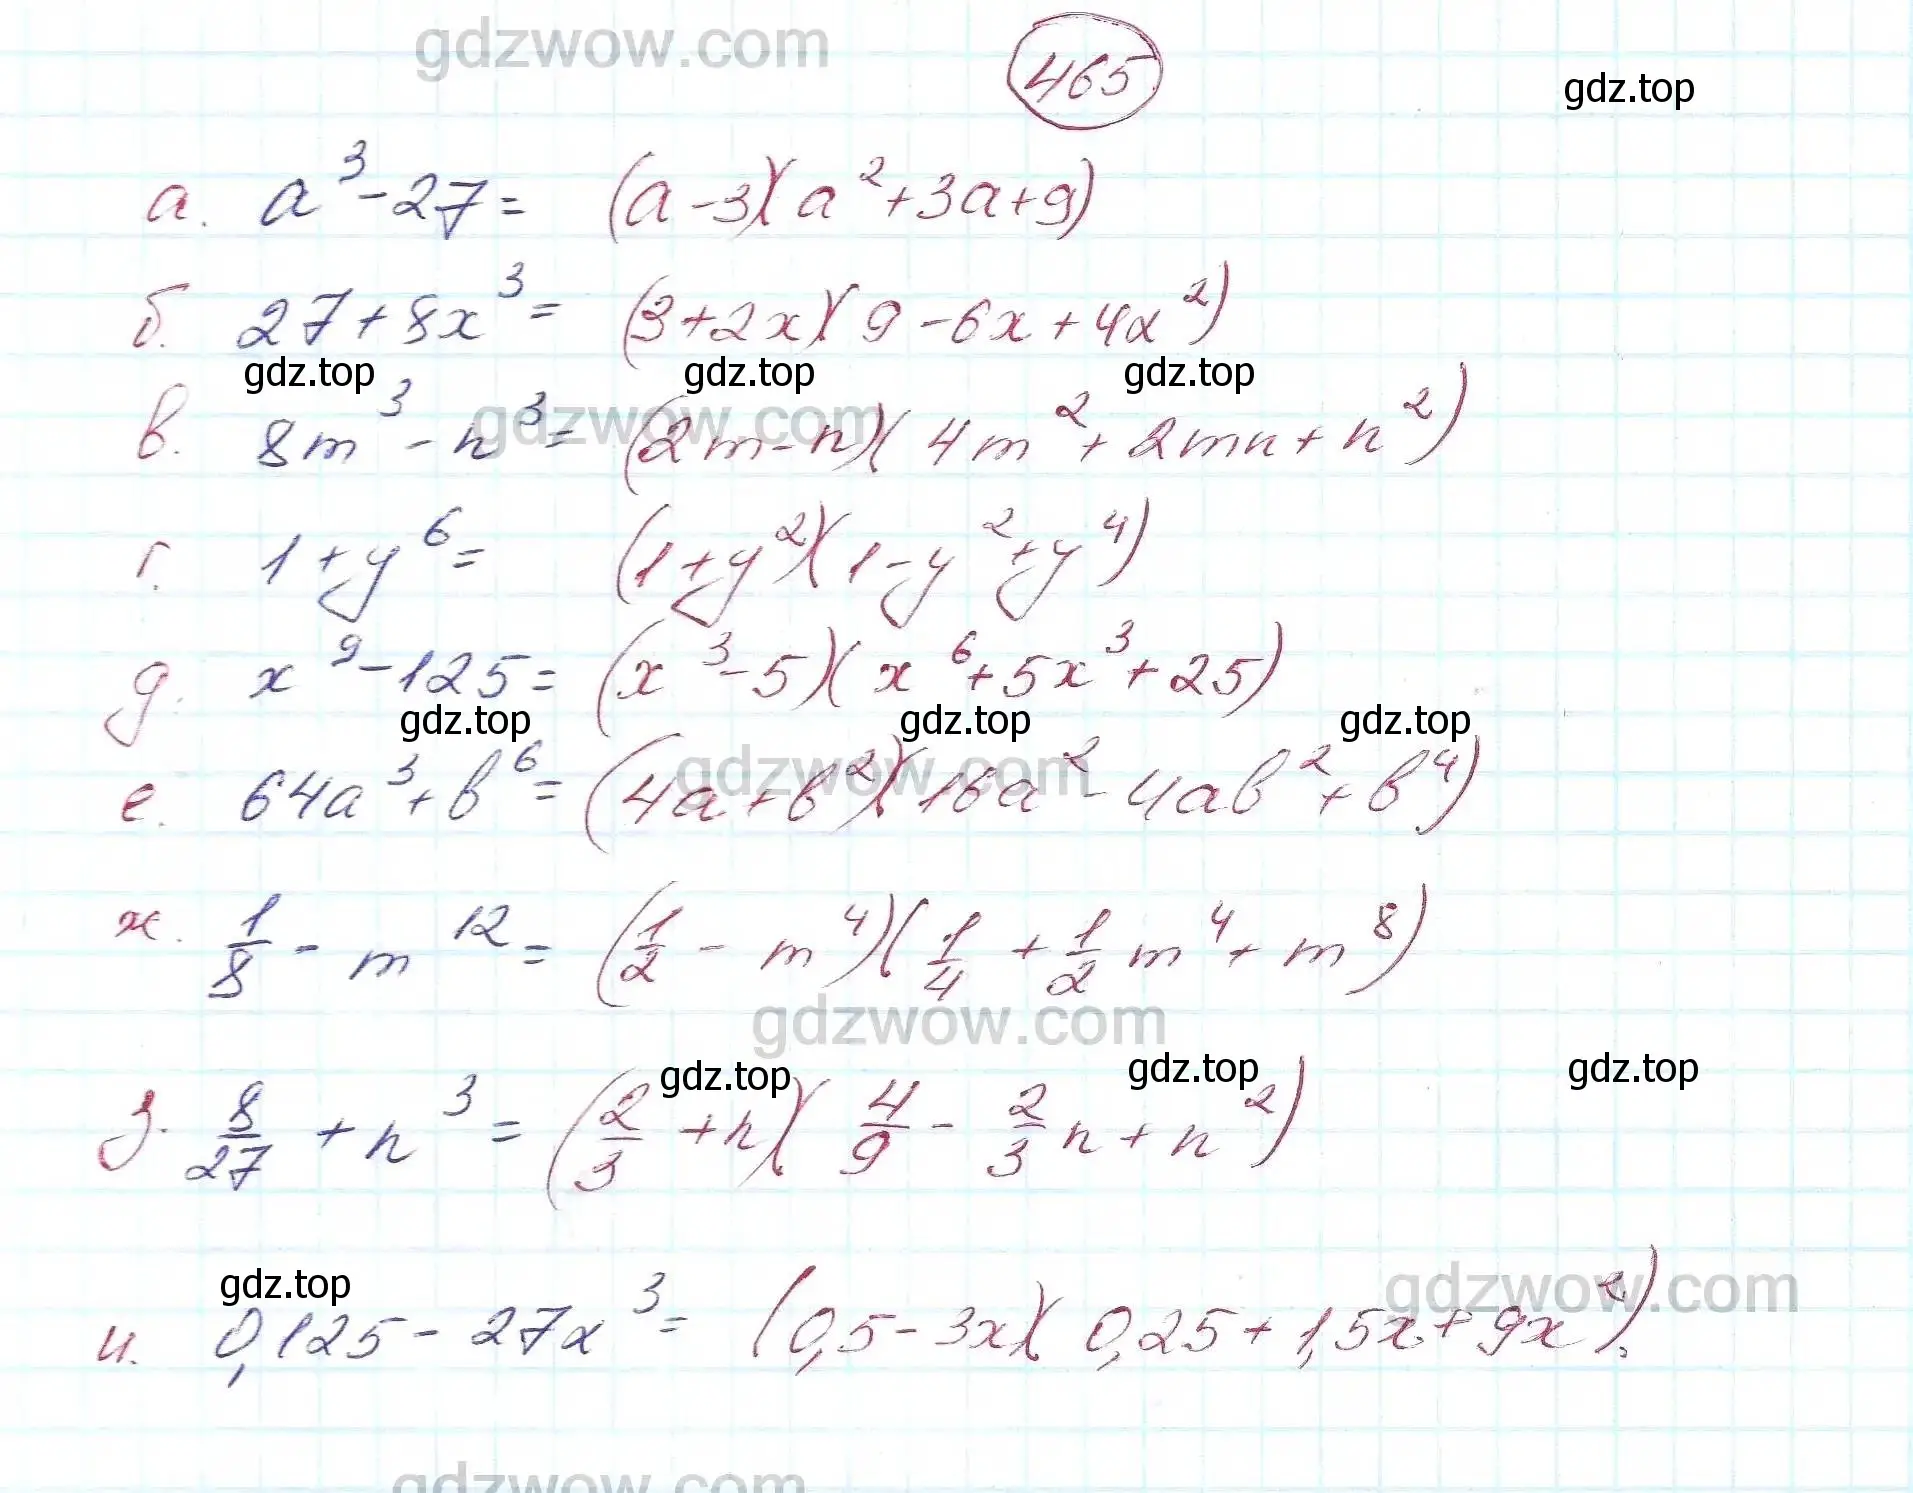 gdzwow.com
465
gdz.top
а. a³ - 27 = (a - 3)(a² + 3a + 9)
б. 27 + 8x³ = (3 + 2x)(9 - 6x + 4x²)
gdz.top gdz.top gdz.top
gdzwow.com
в. 8m³ - n³ = (2m - n)(4m² + 2mn + n²)
г. 1 + y⁶ = (1 + y²)(1 - y² + y⁴)
д. x⁹ - 125 = (x³ - 5)(x⁶ + 5x³ + 25)
gdz.top gdz.top gdz.top
gdzwow.com
е. 64a³ + b⁶ = (4a + b²)(16a² - 4ab² + b⁴)
ж. 1/8 - m¹² = (1/2 - m⁴)(1/4 + 1/2 m⁴ + m⁸)
gdzwow.com
gdz.top gdz.top gdz.top
з. 8/27 + n³ = (2/3 + n)(4/9 - 2/3 n + n²)
gdz.top gdzwow.com
и. 0,125 - 27x³ = (0,5 - 3x)(0,25 + 1,5x + 9x²).
gdzwow.com